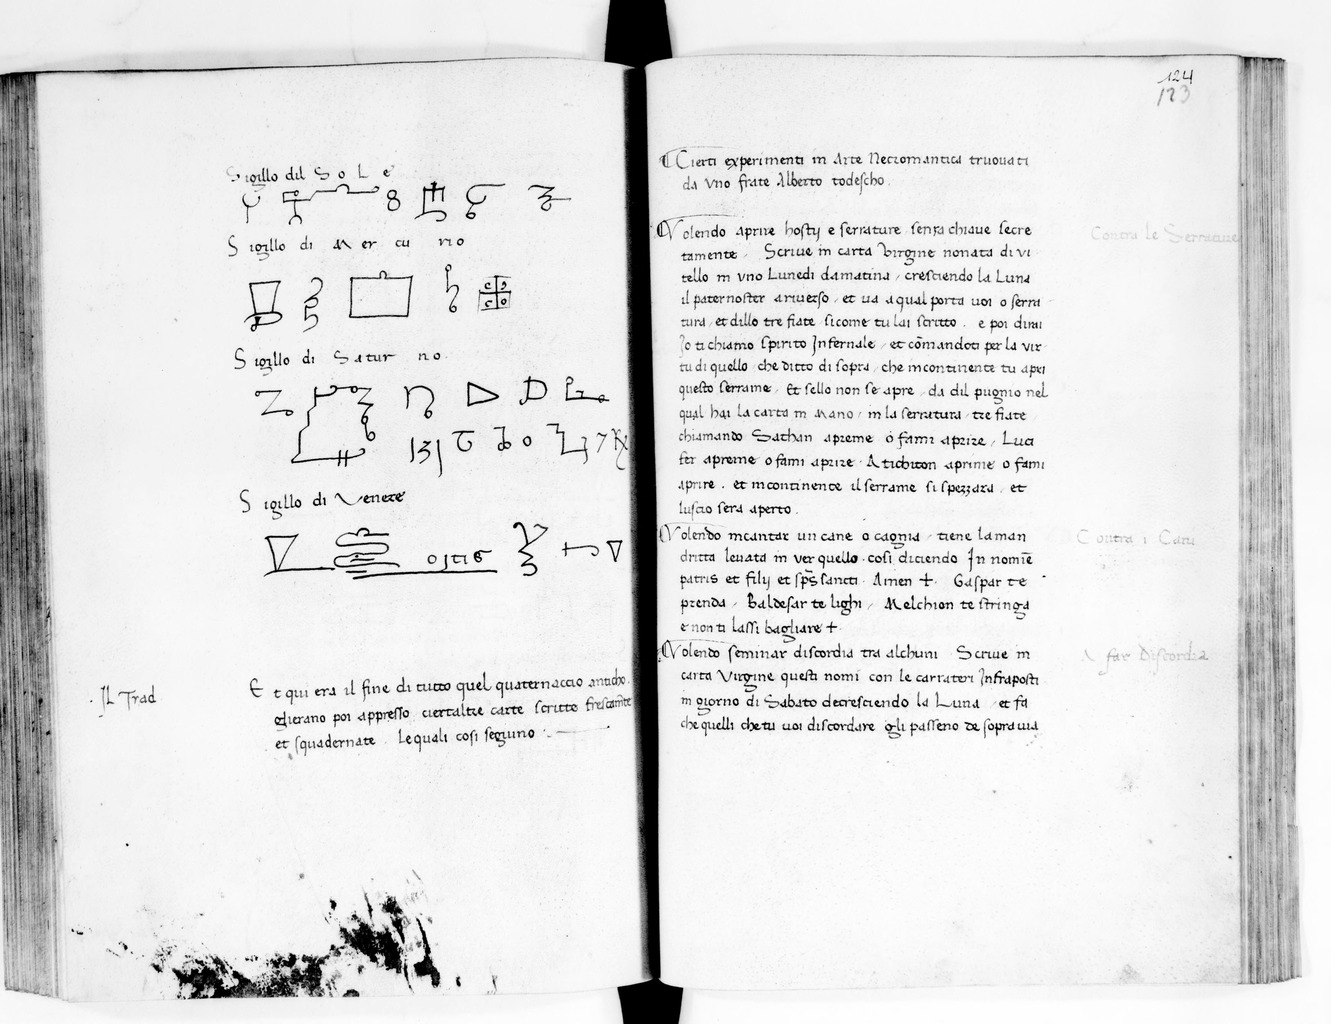 Sigillo dil Sole
Sigillo di Mercurio
Sigillo di Saturno.
Sigillo di Venere
IL Trad
Et qui era il fine di tutto quel quaternaccio anticho.
glierano poi appresso ciertaltre carte scritte frescam̄te
et squadernate. Lequali così seguino.
124
123
Cierti experimenti in Arte Necromantica truovati
da uno frate Alberto todescho.
Volendo aprire hostij e serrature senza chiave secre
tamente. Scrive in carta Virgine nonata di vi
tello in uno Lunedi damatina, cresciendo la Luna
il paternoster ariverso, et va a qual porta voi o serra
tura, et dillo tre fiate sicome tu lai scritto. e poi dirai
Io ti chiamo spirito Infernale, et cōmandoti per la vir
tu di quello che ditto di sopra, che incontinente tu apri
questo serrame. Et sello non se apre, da dil pugnio nel
qual hai la carta in Mano, in la serratura, tre fiate
chiamando Sathan apreme o fami aprire, Luci
fer apreme o fami aprire. Atichiton aprime o fami
aprire. et incontinente il serrame si spezzara, et
luscio sera aperto.
Contra le Serrature
Volendo incantar un cane o cagnia, tiene la man
dritta levata in ver quello, cosi diciendo In nomīe
patris et filij et sp̄s sancti. Amen +. Gaspar te
prenda, Baldesar te lighi, Melchion te stringa
e non ti lassi bagliare +.
Contra i Cani
Volendo seminar discordia tra alchuni. Scrive in
carta Virgine questi nomi con le carrateri Infraposti
in giorno di Sabato decresciendo la Luna, et fa
che quelli che tu voi discordare gli passeno de sopra via
A far Discordia